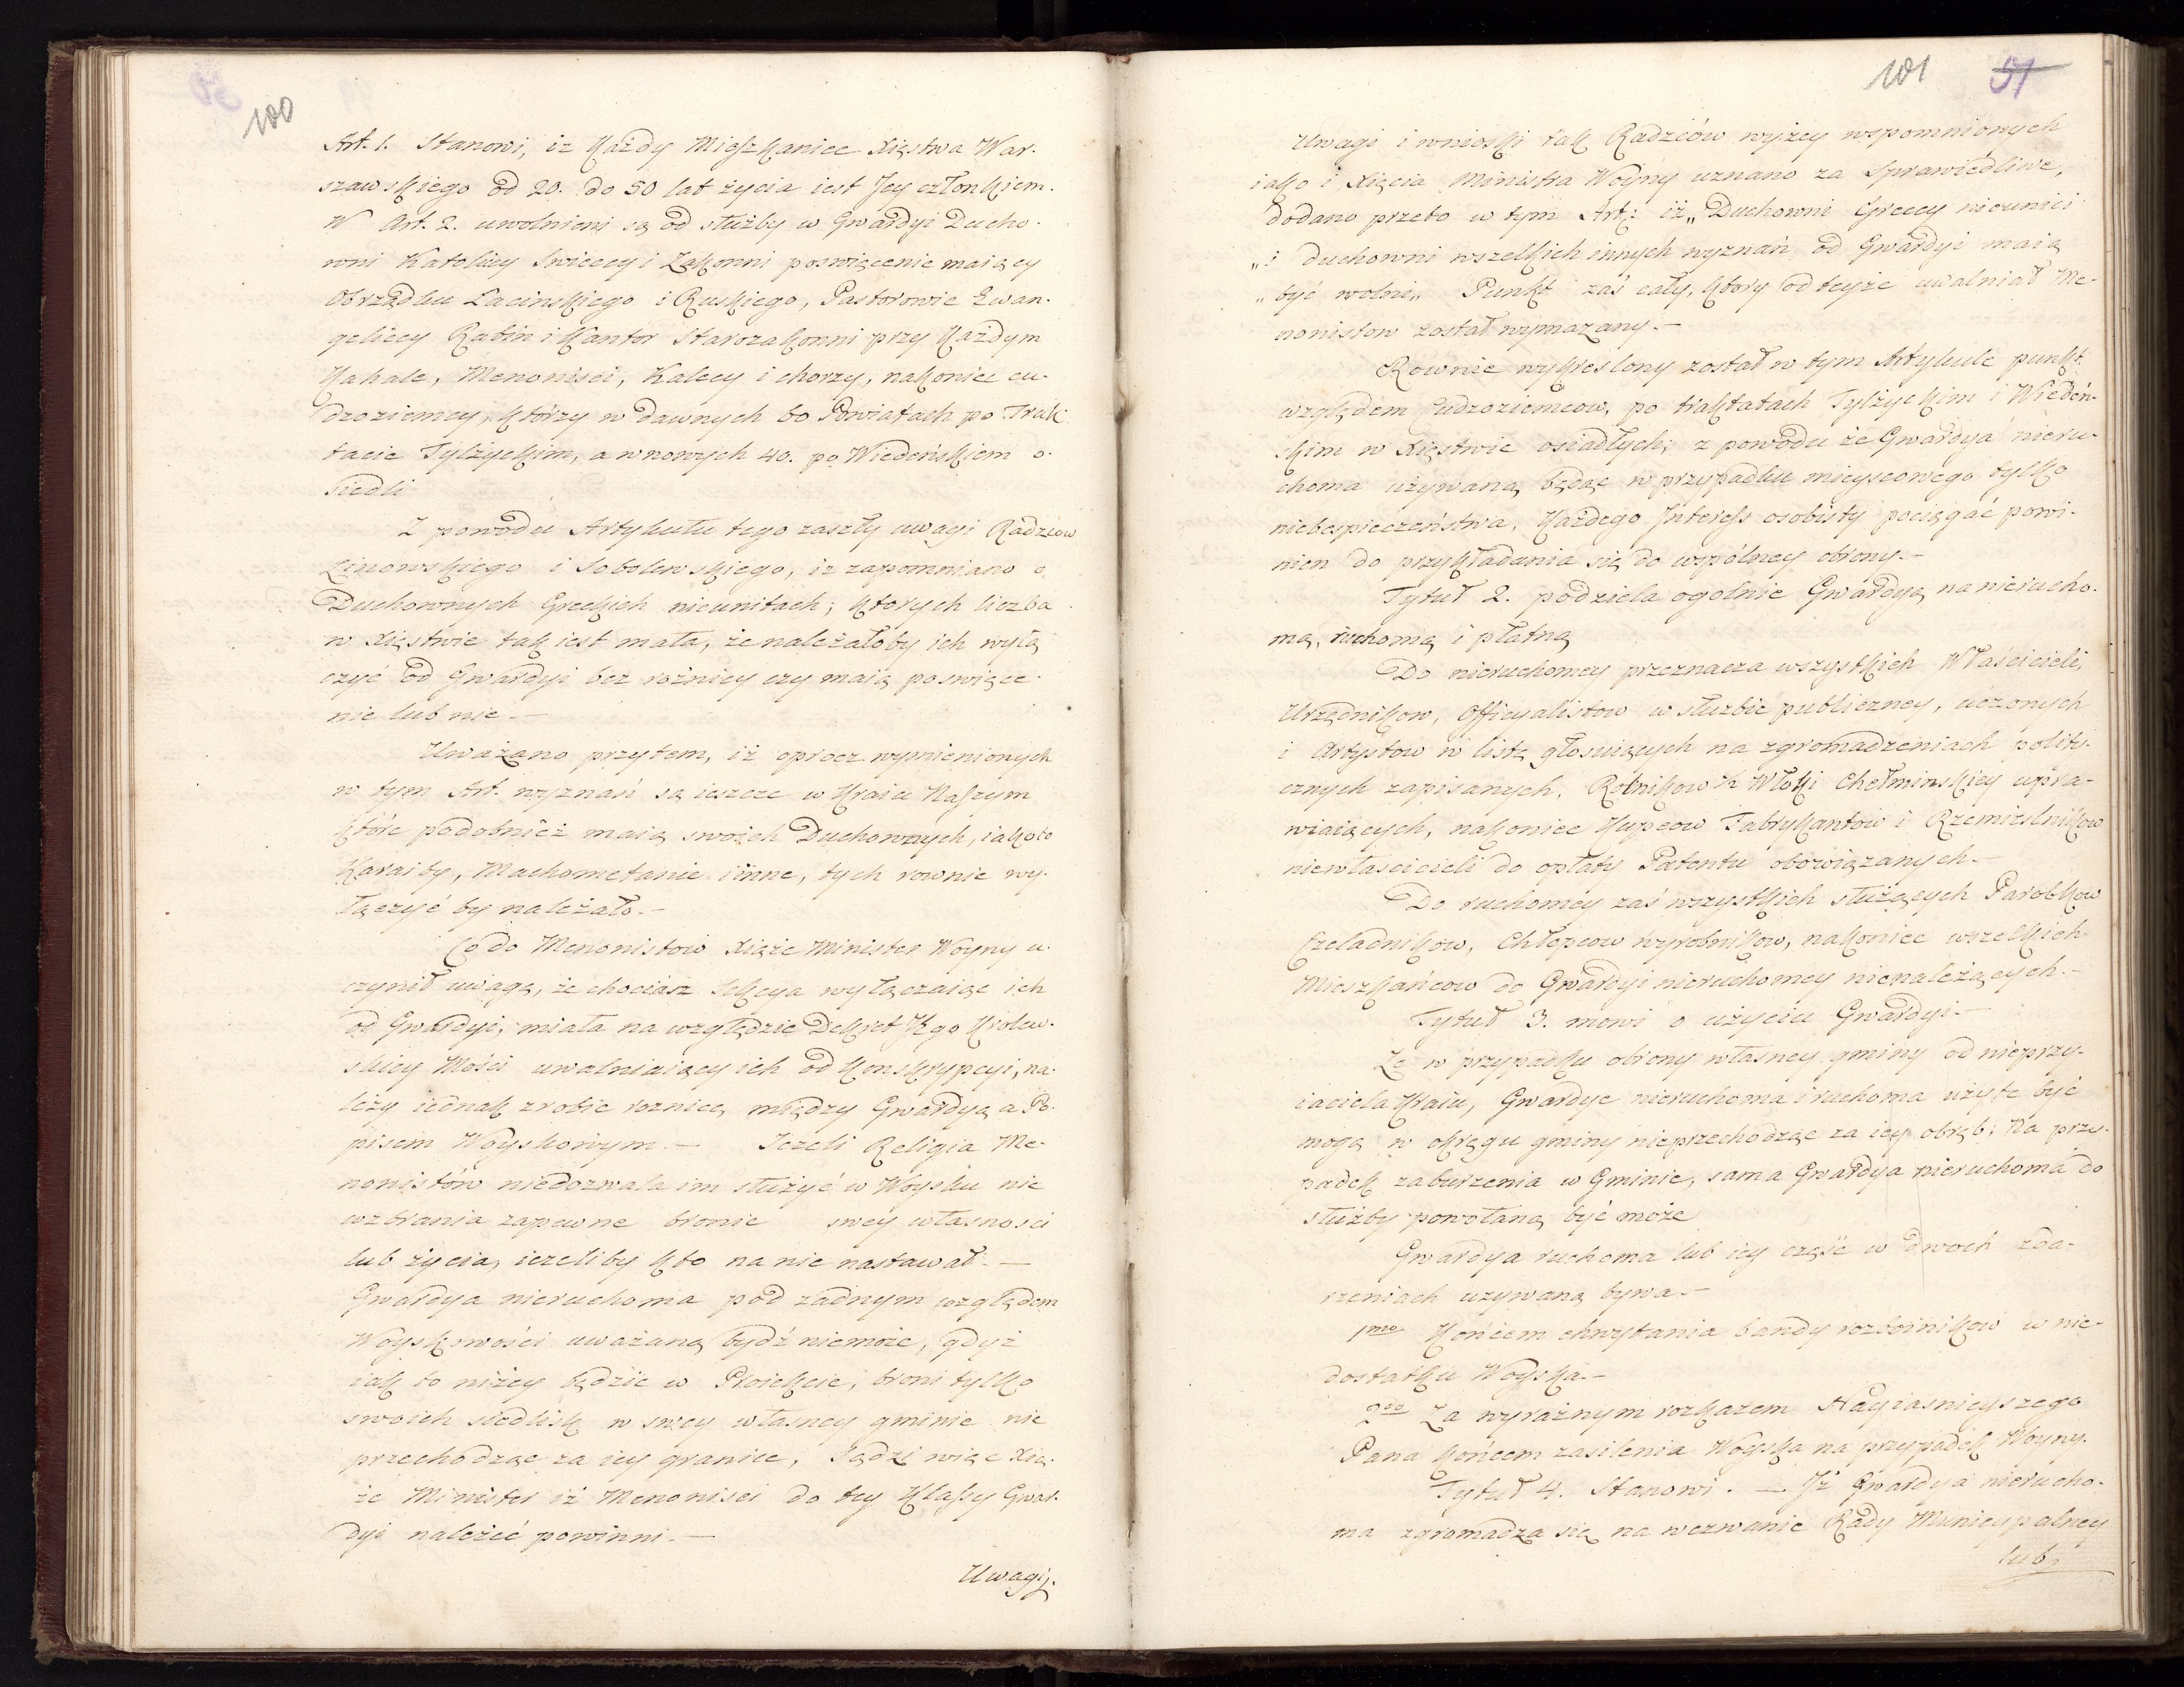 100
Art. 1. Stanowi, iż każdy Mieszkaniec Xięstwa War-
szawskiego od 20. do 50 lat życia iest Jey członkiem.
W Art. 2. uwolnieni są od służby w Gwardyi Ducho-
wni Katoliccy Swieccy i Zakonni poswięcenie maiący
Obrządku Łacinskiego i Ruskiego, Pastorowie Ewan-
geliccy Rabin i Kantor Starozakonni przy każdym
Kahale, Menonisci, Kalecy i chorzy, nakoniec cu-
dzoziemcy, którzy w dawnych 60 Powiatach po Trak-
tacie Tylżyckim, a w nowych 40. po Wiedeńskiem o-
siedli
Z powodu Artykułu tego zaszły uwagi Radzców
Linowskiego i Sobolewskiego, iż zapomniano o
Duchownych Greckich nieunitach; ktorych liczba
w Xięstwie tak iest mała, że należałoby ich wyłą
czyć od Gwardyi bez rożnicy czy maią poswięce-
nie lub nie. —
Uważano przytem, iż oprocz wymienionych
w tym Art. wyznań są ieszcze w Kraiu Naszym
które podobnież maią swoich Duchownych, iakoto
Karaity, Machometanie i inne, tych rownie wy-
łączyć by należało. —
Co do Menonistow Xiąże Minister Woyny u-
czynił uwagę, że chociasz Sekcya wyłączaiąc ich
od Gwardyi, miała na względzie Dekret Jego Krolew-
skiey Mości uwalniaiący ich od konskrypcyi, na-
leży iednak zrobic roznicę między Gwardyą a Po-
pisem Woyskowym. — Jezeli Religia Me-
nonistów niedozwala im służyć w Woysku nie
wzbrania zapewne bronic swey własnosci
lub życia, iezeliby kto na nie nastawał. —
Gwardya nieruchoma pod żadnym względem
Woyskowości uważaną bydź niemoże, gdyż
iak to niżey będzie w Proiekcie, broni tylko
swoich siedlisk w swey własney gminie nie
przechodząc za iey granice, Sądzi więc Xią-
że Minister iż Menonisci do tey Klassy Gwar-
dyi należeć powinni. —
Uwagi
101 51
Uwagi i wnioski tak Radzców wyżey wspomnionych
iako i Xięcia Ministra Woyny uznano za Sprawiedliwe,
dodano przeto w tym Art: iż „Duchowni Greccy nieunici
„i duchowni wszelkich innych wyznań od Gwardyi maią
„być wolni„ Punkt zaś cały, ktory od teyże uwalniał Me-
nonistow został wymazany. —
Rownie wykreslony został w tym Artykule punkt
względem Cudzoziemcow, po traktatach Tylżyckim i Wiedeń-
skim w Xięstwie osiadłych; z powodu że Gwardya nieru-
choma używaną będąc w przypadku mieyscowego tylko
niebespieczeństwa, każdego Interess osobisty pociągać powi-
nien do przykładania się do wspólney obrony. —
Tytuł 2. podziela ogolnie Gwardyą na nierucho-
mą, ruchomą i płatną
Do nieruchomey przeznacza wszystkich Właścicieli,
Urzędnikow, Officyalistow w służbie publiczney, uczonych
i Artystow w listę głosuiących na zgromadzeniach polity-
cznych zapisanych, Rolnikow ½ Włoki Chełminskiey upra-
wiaiących, nakoniec Kupcow Fabrykantow i Rzemieslnikow
niewłascicieli do opłaty Patentu obowiązanych. —
Do ruchomey zaś wszystkich służących Parobkow
Czeladnikow, Chłopcow wyrobnikow, nakoniec wszelkich
Mieszkańcow do Gwardyi nieruchomey nienależących. —
Tytuł 3. mowi o użyciu Gwardyi. —
Że w przypadku obrony własney gminy od nieprzy-
iaciela Kraiu, Gwardye nieruchoma i ruchoma użyte być
mogą w okręgu gminy nieprzechodząc za iey obręb; Na przy-
padek zaburzenia w Gminie, sama Gwardya nieruchoma do
służby powołaną być może
Gwardya ruchoma lub iey część w dwoch zda-
rzeniach używaną bywa. —
1mo Końcem chwytania bandy rozboinikow w nie-
dostatku Woyska. —
2do Za wyraźnym rozkazem Nayiasnieyszego
Pana końcem zasilenia Woyska na przypadek Woyny.
Tytuł 4. Stanowi. — Iż Gwardya nierucho-
ma zgromadza się na wezwanie Rady Municypalney
lub